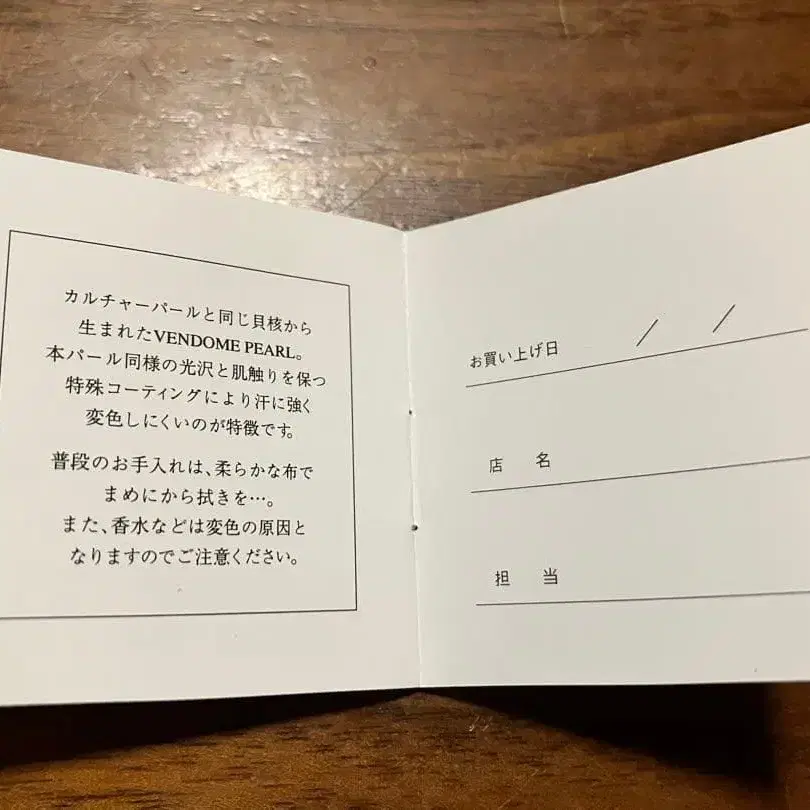 カルチャーパールと同じ貝核から
生まれたVENDOME PEARL。
本パール同様の光沢と肌触りを保つ
特殊コーティングにより汗に強く
変色しにくいのが特徴です。
普段のお手入れは、柔らかな布で
まめにから拭きを…。
また、香水などは変色の原因と
なりますのでご注意ください。
お買い上げ日 / /
店 名
担 当